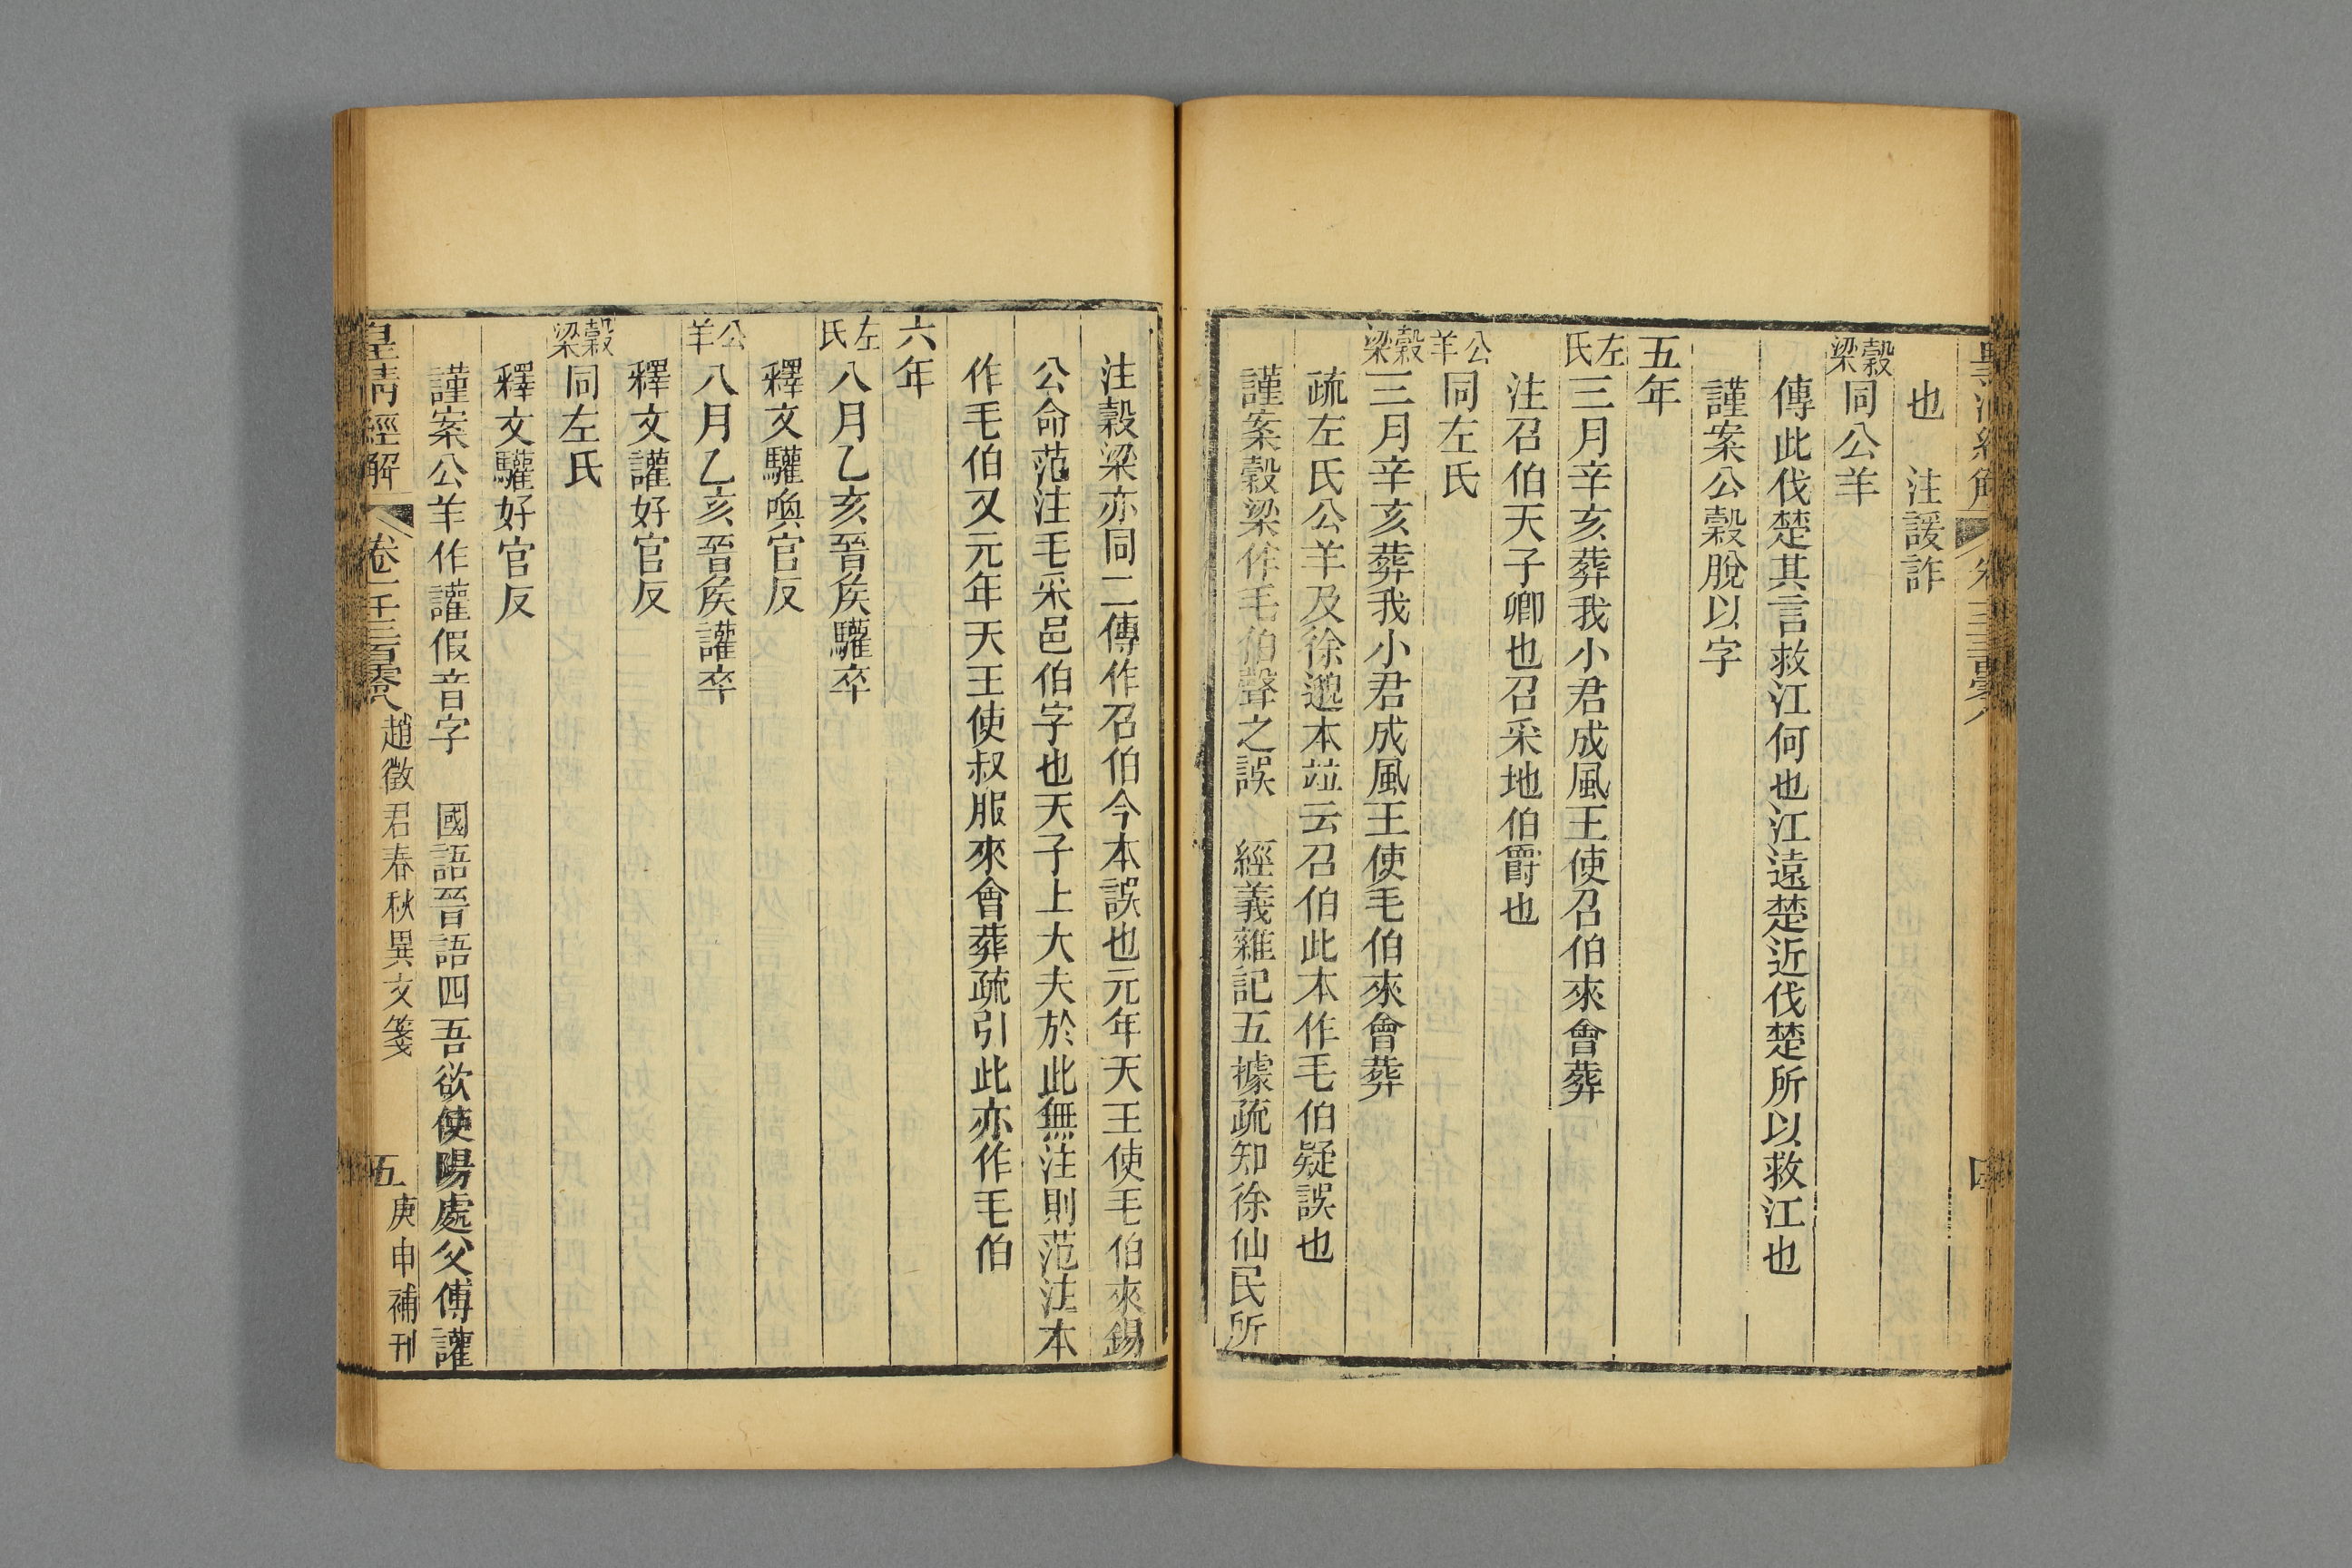 也　注諼詐
穀梁同公羊
傳此伐楚其言救江何也江遠楚近伐楚所以救江也
謹案公穀脫以字
五年
左氏三月辛亥葬我小君成風王使召伯來會葬
注召伯天子卿也召采地伯爵也
公羊同左氏
穀梁三月辛亥葬我小君成風王使毛伯來會葬
疏左氏公羊及徐邈本竝云召伯此本作毛伯疑誤也
謹案穀梁作毛伯聲之誤　經義雜記五據疏知徐仙民所
注穀梁亦同二傳作召伯今本誤也元年天王使毛伯來錫
公命范注毛采邑伯字也天子上大夫於此無注則范注本
作毛伯又元年天王使叔服來會葬疏引此亦作毛伯
六年
左氏八月乙亥晉矦驩卒
釋文驩喚官反
公羊八月乙亥晉矦讙卒
釋文讙好官反
穀梁同左氏
釋文驩好官反
謹案公羊作讙假音字　國語晉語四吾欲使陽處父傅讙
皇清經解　卷一千三百零八　趙徵君春秋異文箋　五　庚申補刊